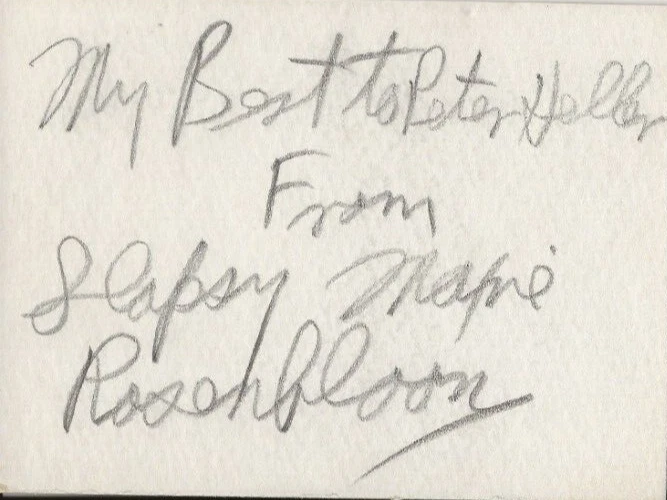 My Best to Peter Heller
From
Slapsy Maxie
Rosenbloom